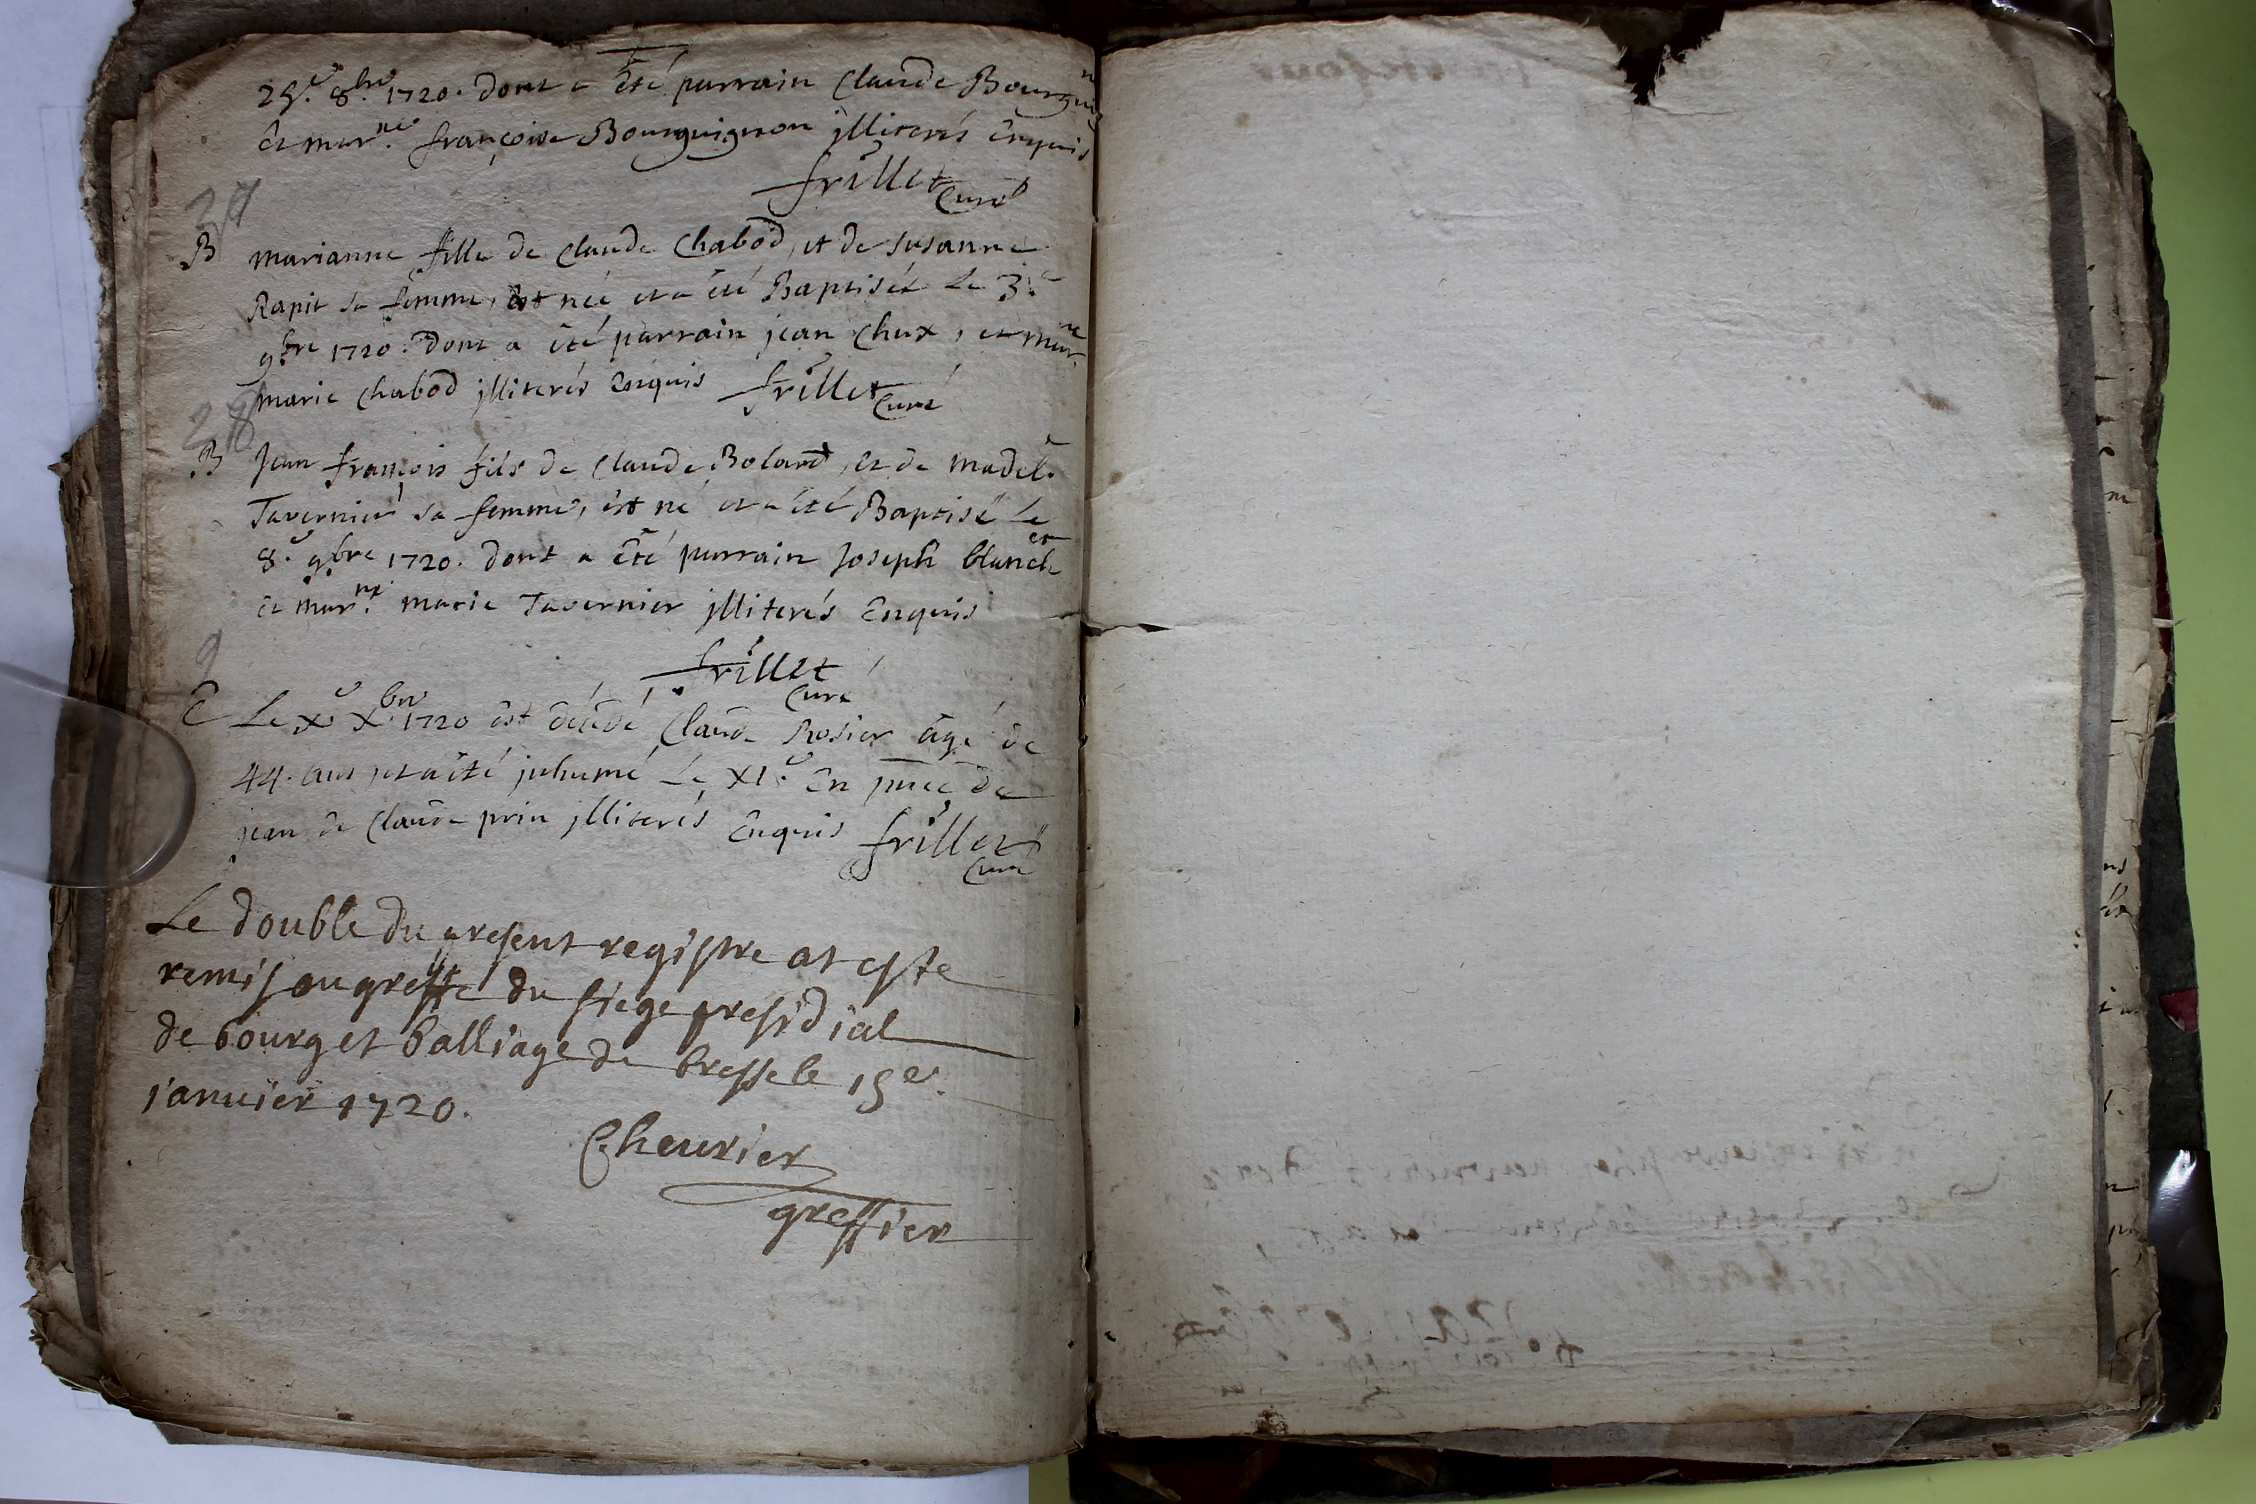 25.e 8.bre 1720. dont a été parrain Claude Bourguig.n
Et mar.ne françoise Bourguignon illiterés Enquis
frillet
Curé
37
B marianne fille de Claude Chabod, et de susanne
Rapit sa femme, est née et a été Baptisée Le 3.e
9.bre 1720. dont a été parrain jean Chux, et mar.ne
marie Chabod illiterés Enquis frillet
Curé
38
B Jean françois fils de Claude Bolard, Et de madel.e
Tavernier sa femme, est né et a été Baptisé Le
8.e 9.bre 1720. dont a été parrain Joseph blanch et
Et mar.ne marie Tavernier illiterés Enquis
frillet
Curé
9
E Le X.e X.bre 1720 est décédé Claude Rosier âgé de
44. ans et a été inhumé Le XI.e En pnce de
jean de Claude prin illiterés Enquis frillet
Curé
Le double du present registre at este
remis au greffe du siege presidial
de bourg et balliage de bresse le 15.e
janvier 1720.
Cheurier
greffier